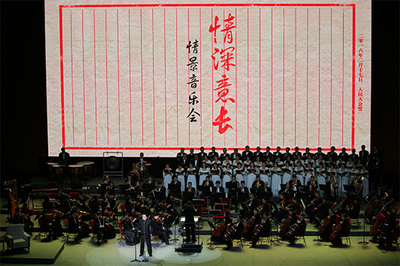 二〇一六年二月十七日 人民大会堂
情深意长
情景音乐会